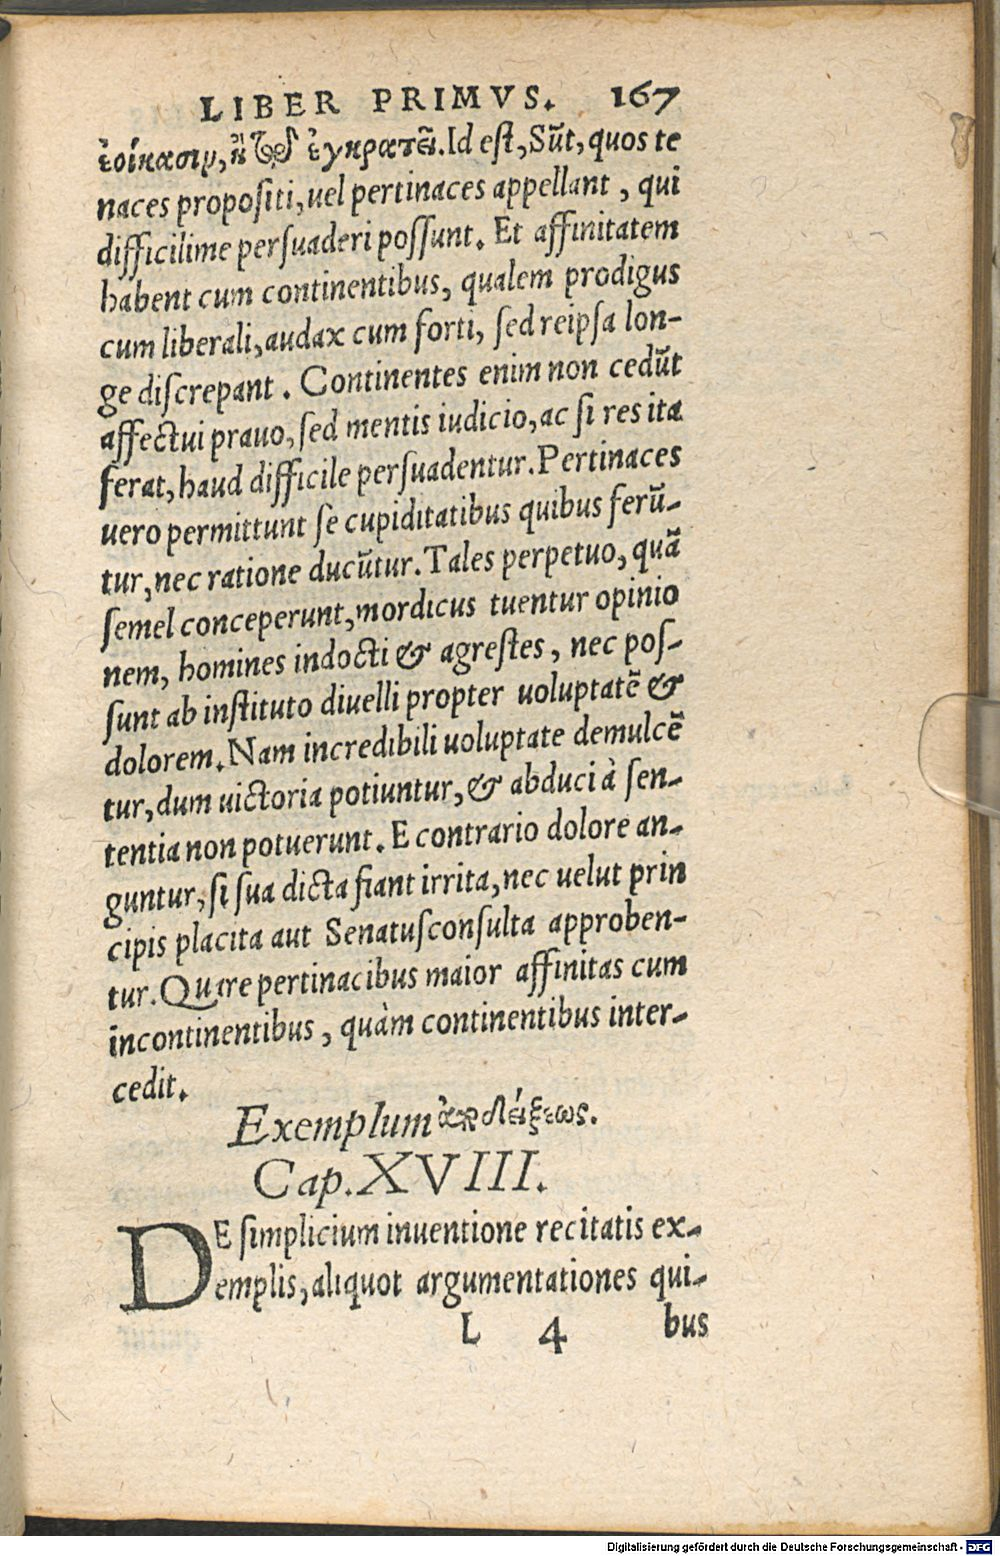 LIBER PRIMVS. 167
ἐοίκασιν, ἢ τῷ ἐγκρατεῖ. Id eſt, Sũt, quos te
naces propoſiti, uel pertinaces appellant, qui
difficilime perſuaderi poſſunt. Et affinitatem
habent cum continentibus, qualem prodigus
cum liberali, audax cum forti, ſed reipſa lon-
ge diſcrepant. Continentes enim non cedũt
affectui prauo, ſed mentis iudicio, ac ſi res ita
ferat, haud difficile perſuadentur. Pertinaces
uero permittunt ſe cupiditatibus quibus ferũ-
tur, nec ratione ducũtur. Tales perpetuo, quã
ſemel conceperunt, mordicus tuentur opinio
nem, homines indocti & agreſtes, nec poſ-
ſunt ab inſtituto diuelli propter uoluptatẽ &
dolorem. Nam incredibili uoluptate demulcẽ
tur, dum uictoria potiuntur, & abduci à ſen-
tentia non potuerunt. E contrario dolore an-
guntur, ſi ſua dicta fiant irrita, nec uelut prin
cipis placita aut Senatuſconſulta approben-
tur. Quare pertinacibus maior affinitas cum
incontinentibus, quàm continentibus inter-
cedit.
Exemplum ἀποδείξεως.
Cap. XVIII.
DE ſimplicium inuentione recitatis ex-
emplis, aliquot argumentationes qui-
L 4 bus
Digitalisierung gefördert durch die Deutsche Forschungsgemeinschaft - DFG